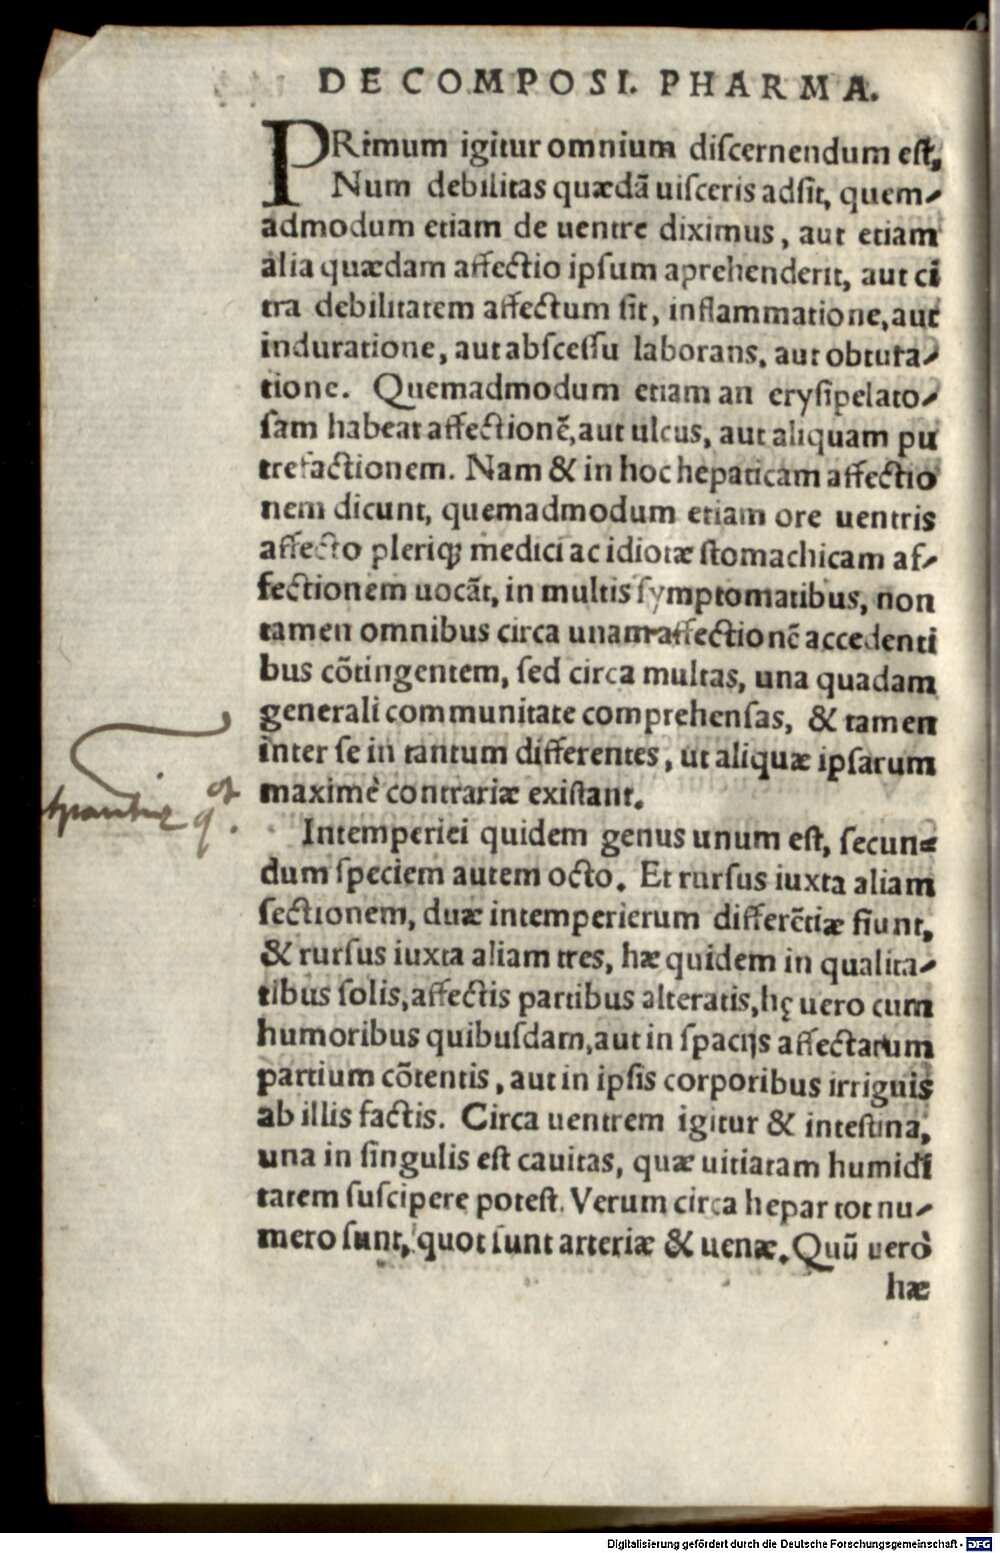 DE COMPOSI. PHARMA.
PRimum igitur omnium discernendum est,
Num debilitas quædā uisceris adsit, quem-
admodum etiam de uentre diximus, aut etiam
alia quædam affectio ipsum aprehenderit, aut ci
tra debilitatem affectum sit, inflammatione, aut
induratione, aut abscessu laborans, aut obtura-
tione. Quemadmodum etiam an erysipelato-
sam habeat affectionē, aut ulcus, aut aliquam pu
trefactionem. Nam & in hoc hepaticam affectio
nem dicunt, quemadmodum etiam ore uentris
affecto pleriq; medici ac idiotæ stomachicam af-
fectionem uocāt, in multis symptomatibus, non
tamen omnibus circa unam affectionē accedenti
bus cōtingentem, sed circa multas, una quadam
generali communitate comprehensas, & tamen
inter se in tantum differentes, ut aliquæ ipsarum
maximè contrariæ existant.
Intemperiei quidem genus unum est, secun-
dum speciem autem octo. Et rursus iuxta aliam
sectionem, duæ intemperierum differētiæ fiunt,
& rursus iuxta aliam tres, hæ quidem in qualita-
tibus solis, affectis partibus alteratis, hę uero cum
humoribus quibusdam, aut in spacijs affectarum
partium cōtentis, aut in ipsis corporibus irriguis
ab illis factis. Circa uentrem igitur & intestina,
una in singulis est cauitas, quæ uitiatam humidi
tatem suscipere potest. Verum circa hepar tot nu-
mero sunt, quot sunt arteriæ & uenæ. Quū uerò
hæ
Digitalisierung gefördert durch die Deutsche Forschungsgemeinschaft - DFG